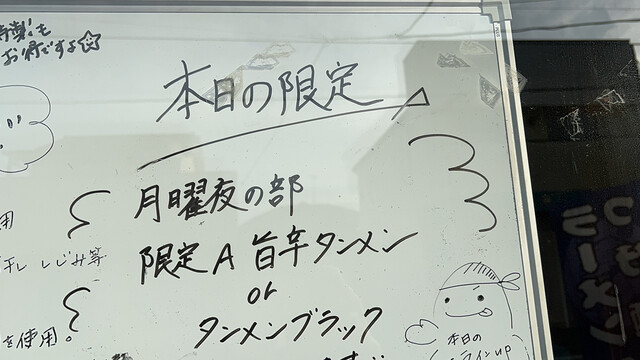 も
お得ですよ☆
本日の限定
月曜夜の部
用
限定A 旨辛タンメン
干し しじみ等
or
タンメンブラック
を使用。
本日の
ラインup
ラーメン